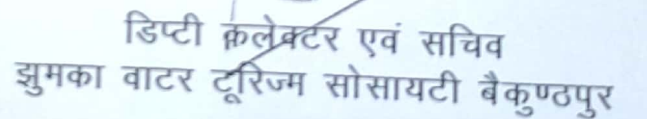 डिप्टी कलेक्टर एवं सचिव
झुमका वाटर टूरिज्म सोसायटी बैकुण्ठपुर